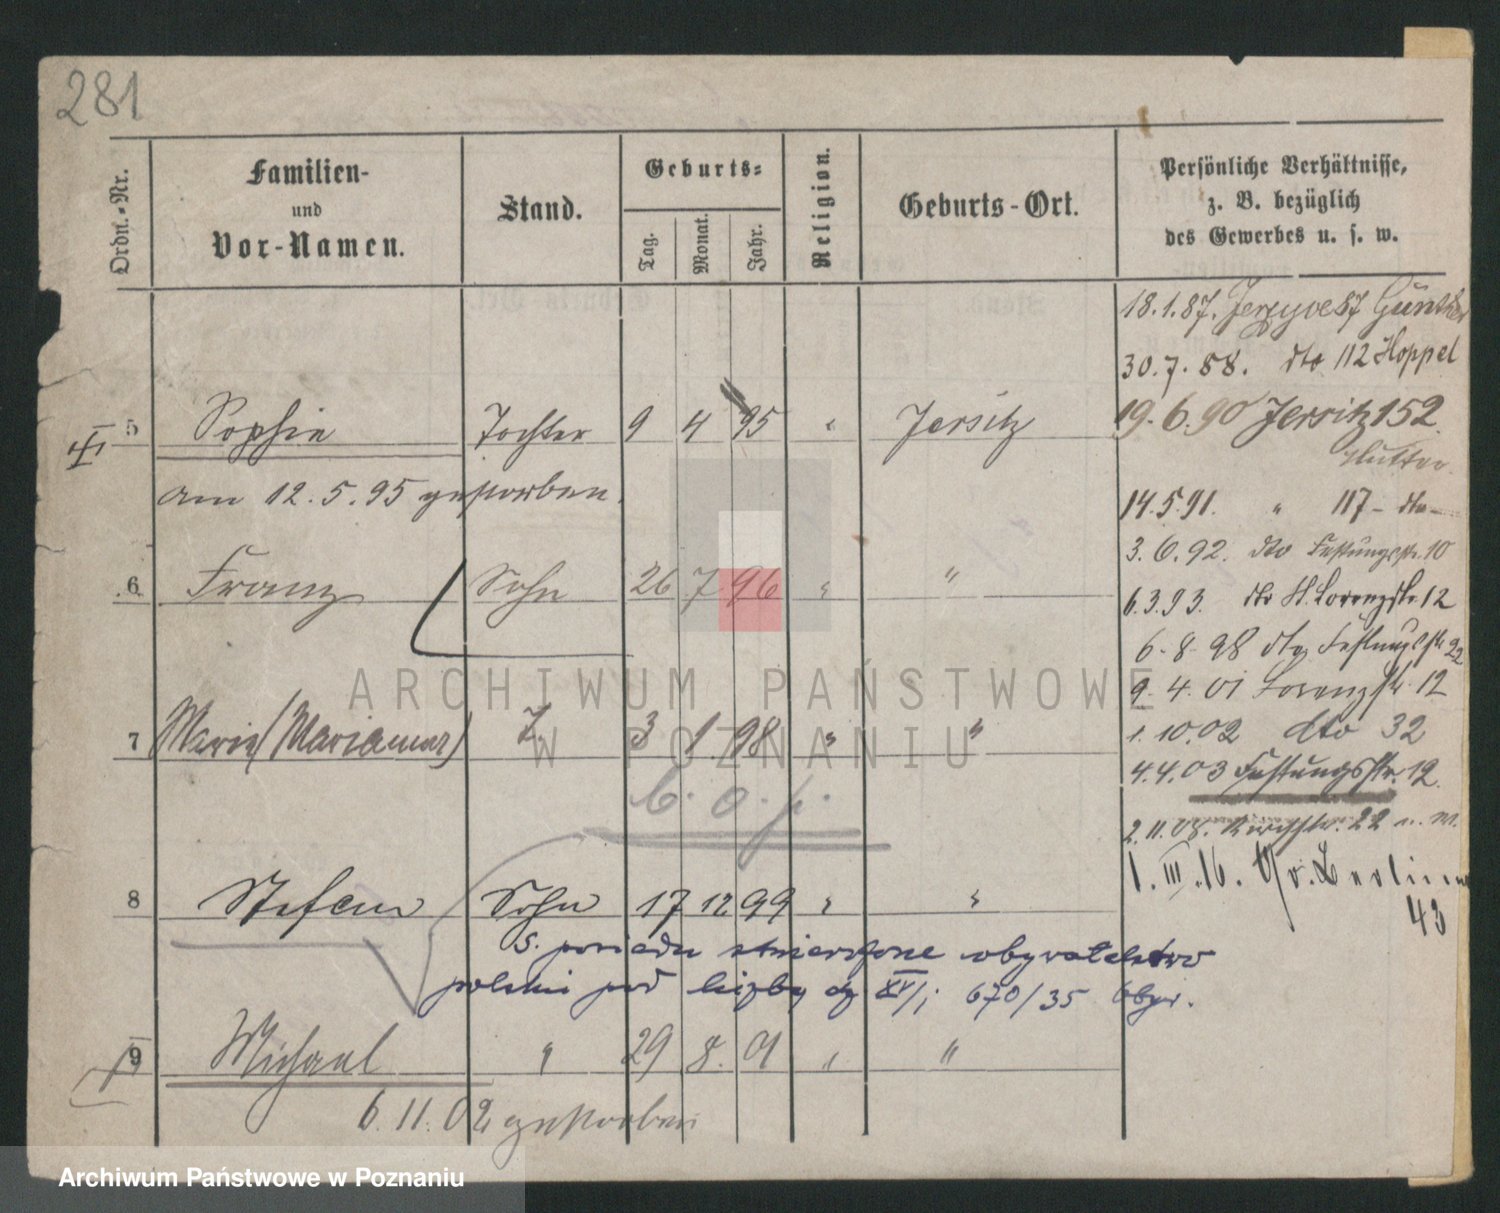 281
Ordn.-Nr.
Familien-
und
Vor-Namen.
Stand.
Geburts-
Tag.
Monat.
Jahr.
Religion.
Geburts-Ort.
Persönliche Verhältnisse,
z. B. bezüglich
des Gewerbes u. s. w.
18.1.87. 87 Günther
30.7.88. dto 112 Hoppel
19.6.90 Jersitz 152
5 Sophie Tochter 9 4 95 " Jersitz
am 12.5.95 gestorben.
14.5.91. " 117 - dto -
3.6.92. dto Festungsstr. 10
6 Franz Sohn 26 7 96 " "
6.3.93. dto St. Lorenzstr. 12
6.8.98 dto Festungsstr. 22
9.4.01 Lorenzstr. 12
7 Marie (Marianna) T. 3 1 98 " "
1.10.02 dto 32
4.4.03 Festungsstr. 12.
b. o. p.
2.11.08. Kirchstr. 22
1. III. 16. Gr. Berliner
43
8 Stefan Sohn 17 12 99 " "
s. posiada stwierdzone obywatelstwo
polskie pod liczbą dz XV/j 670/35 Obyw.
9 Michael " 29 8. 01 " "
6.11.02 gestorben
ARCHIWUM PAŃSTWOWE
W POZNANIU
Archiwum Państwowe w Poznaniu